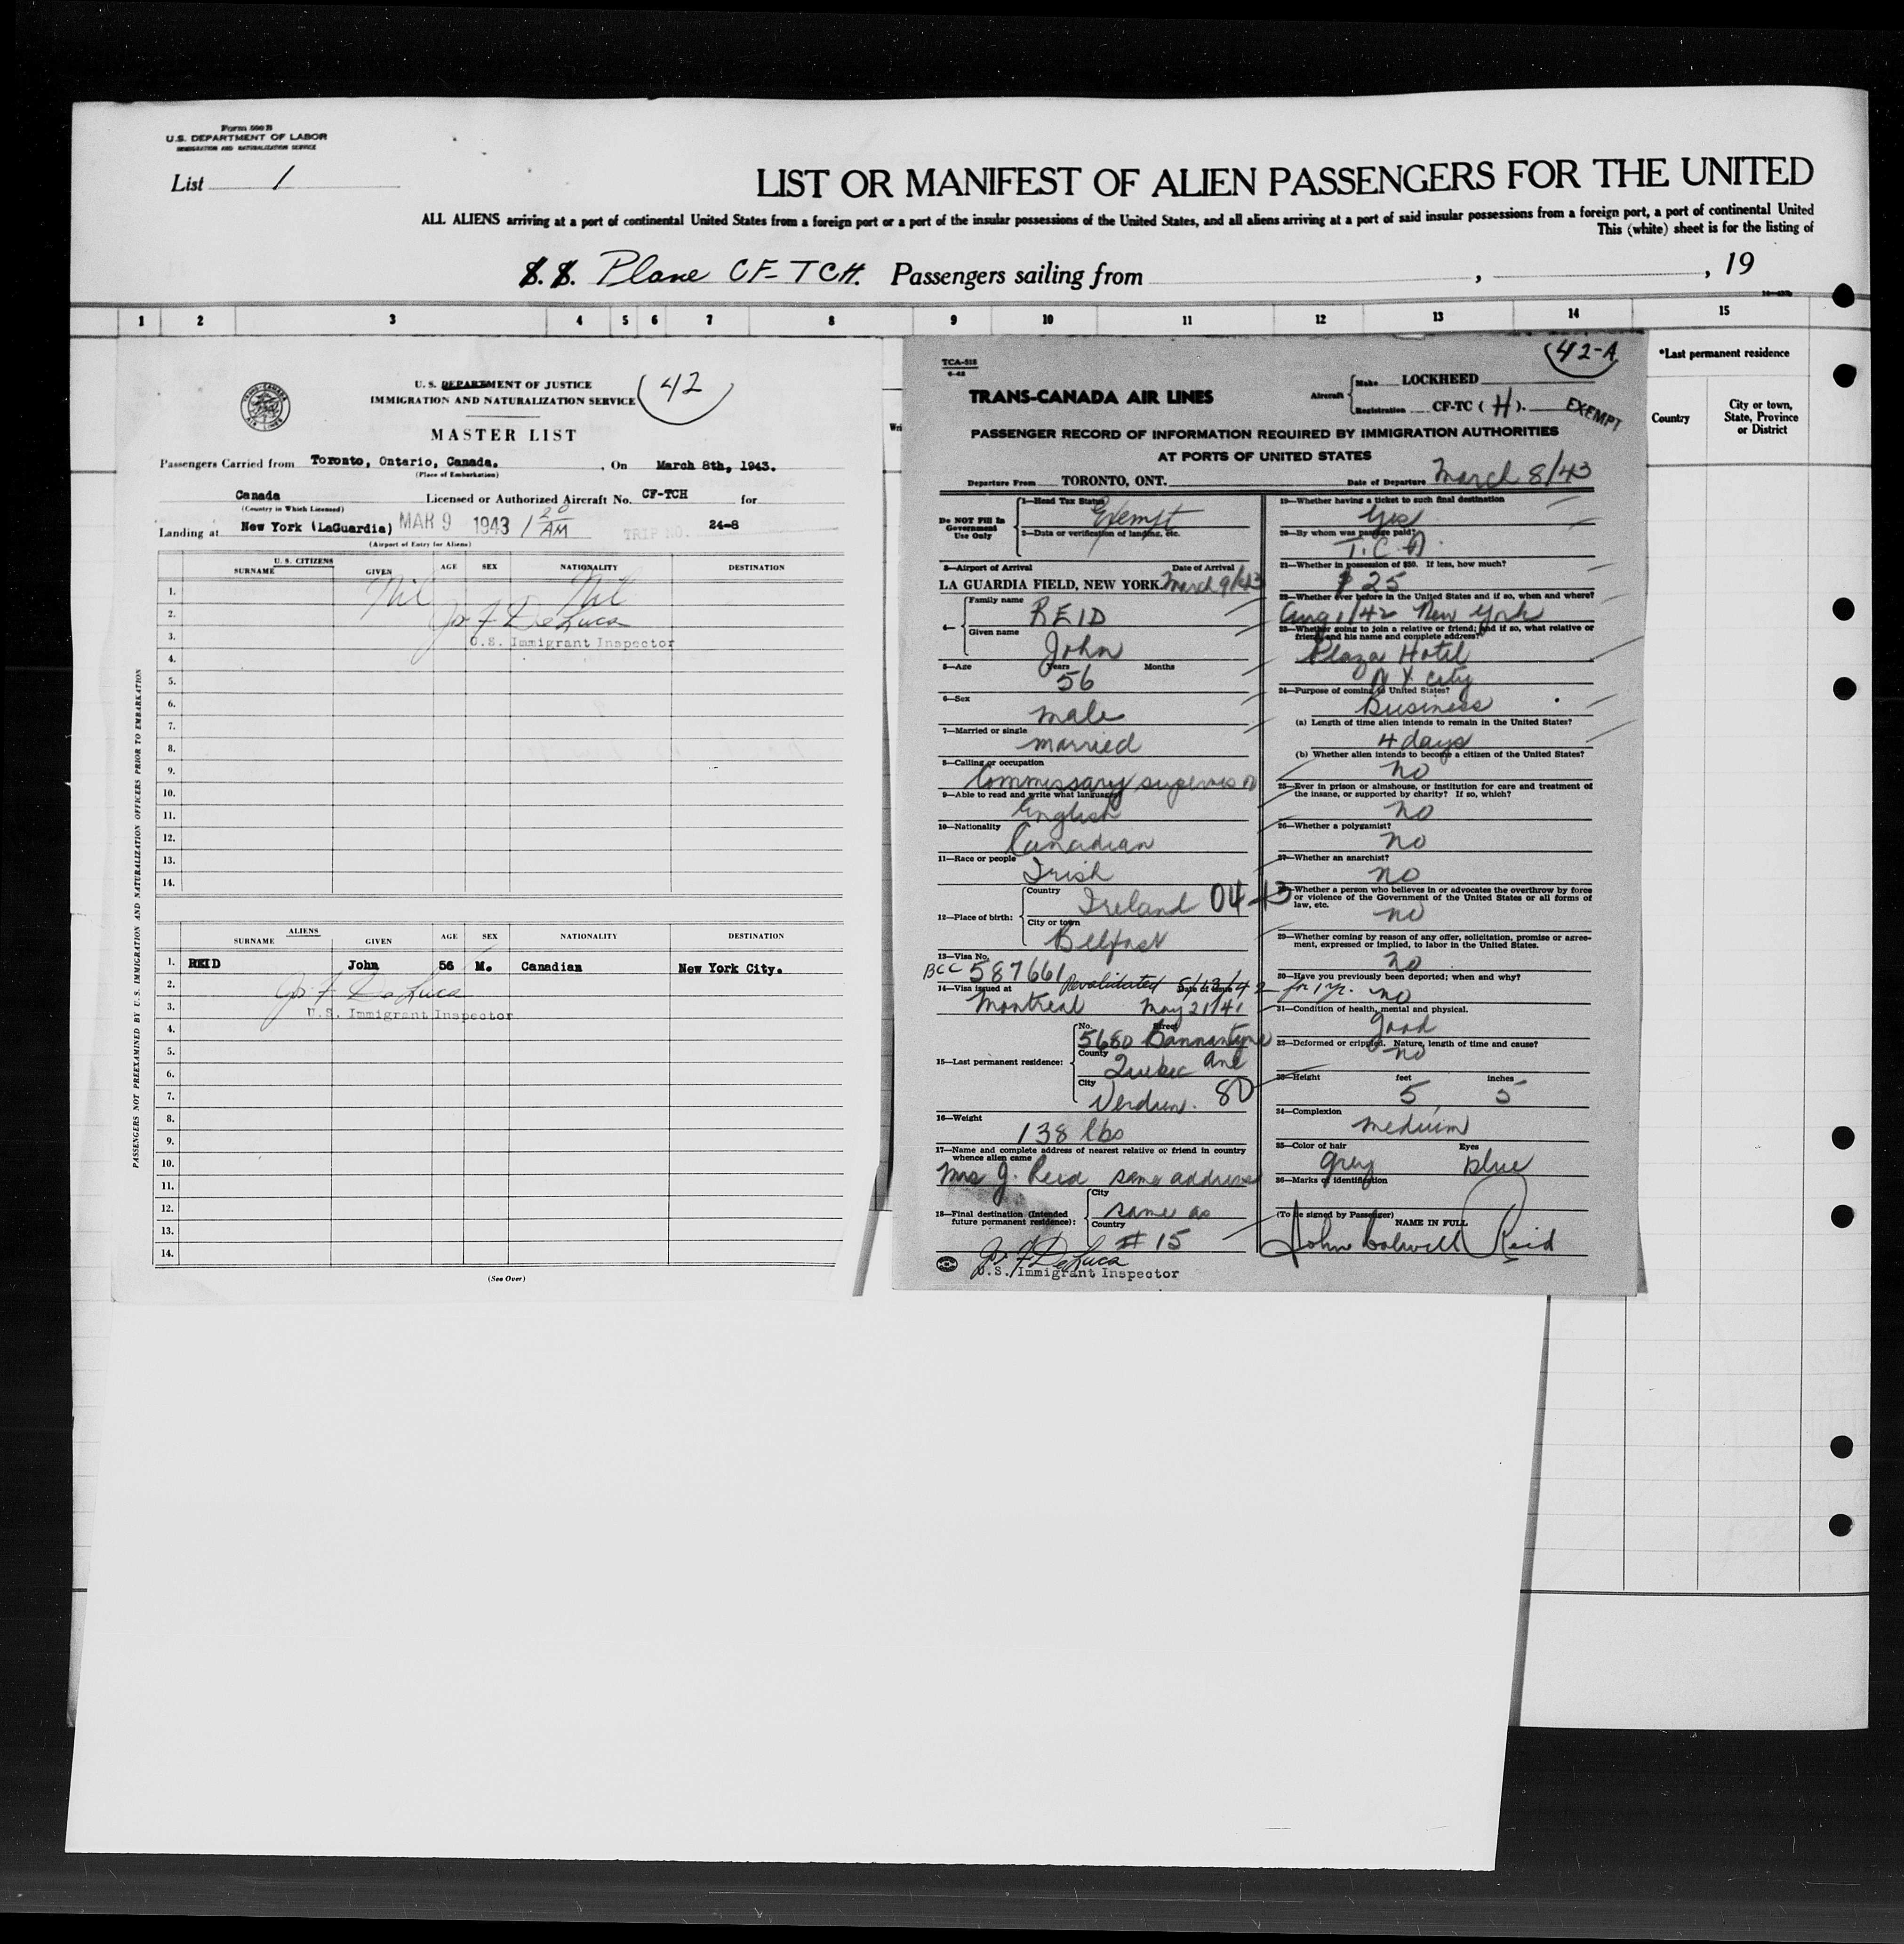 Form 500 B
U.S. DEPARTMENT OF LABOR
IMMIGRATION AND NATURALIZATION SERVICE
List 1
LIST OR MANIFEST OF ALIEN PASSENGERS FOR THE UNITED
ALL ALIENS arriving at a port of continental United States from a foreign port or a port of the insular possessions of the United States, and all aliens arriving at a port of said insular possessions from a foreign port, a port of continental United
This (white) sheet is for the listing of
S. S. Plane CF-TCH. Passengers sailing from , , 19
1 2 3 4 5 6 7 8 9 10 11 12 13 14 15
*Last permanent residence
Country
City or town,
State, Province
or District
U. S. DEPARTMENT OF JUSTICE
IMMIGRATION AND NATURALIZATION SERVICE
42
MASTER LIST
Passengers Carried from Toronto, Ontario, Canada. , On March 8th, 1943.
(Place of Embarkation)
Canada Licensed or Authorized Aircraft No. CF-TCH for
(Country in Which Licensed)
Landing at New York (LaGuardia) MAR 9 1943 1 20 AM TRIP NO. 24-8
(Airport of Entry for Aliens)
U. S. CITIZENS
SURNAME GIVEN AGE SEX NATIONALITY DESTINATION
1. Nil Nil
2. Jos F DeLuca
3. U.S. Immigrant Inspector
4.
5.
6.
7.
8.
9.
10.
11.
12.
13.
14.
ALIENS
SURNAME GIVEN AGE SEX NATIONALITY DESTINATION
1. REID John 56 M. Canadian New York City.
2. Jos F DeLuca
3. U.S. Immigrant Inspector
4.
5.
6.
7.
8.
9.
10.
11.
12.
13.
14.
(See Over)
PASSENGERS NOT PREEXAMINED BY U. S. IMMIGRATION AND NATURALIZATION OFFICERS PRIOR TO EMBARKATION
TCA-518
6-42
42-A
TRANS-CANADA AIR LINES
Aircraft Make LOCKHEED
Registration CF-TC ( H ).
EXEMPT
PASSENGER RECORD OF INFORMATION REQUIRED BY IMMIGRATION AUTHORITIES
AT PORTS OF UNITED STATES
Departure From TORONTO, ONT. Date of Departure March 8/43
Do NOT Fill In
Government
Use Only
1—Head Tax Status
Exempt
2—Data or verification of landing, etc.
3—Airport of Arrival Date of Arrival
LA GUARDIA FIELD, NEW YORK. March 9/43
4— Family name
REID
Given name
John
5—Age Years Months
56
6—Sex
male
7—Married or single
married
8—Calling or occupation
Commissary supervisor
9—Able to read and write what languages
English
10—Nationality
Canadian
11—Race or people
Irish
12—Place of birth: Country
Ireland 04-13
City or town
Belfast
13—Visa No.
BCC 587661 Revalidated 5/19/42 for 1 yr.
14—Visa issued at Date of issue
Montreal May 21/41
15—Last permanent residence: No. Street
5680 Bannantyne
County
Quebec Ave
City
Verdun. 80
16—Weight
138 lbs
17—Name and complete address of nearest relative or friend in country
whence alien came
Mrs J. Reid same address
18—Final destination (Intended
future permanent residence):
City
same as
Country
# 15
Jos F DeLuca
U.S. Immigrant Inspector
19—Whether having a ticket to such final destination
Yes
20—By whom was passage paid?
T.C.A.
21—Whether in possession of $50. If less, how much?
$ 25
22—Whether ever before in the United States and if so, when and where?
Aug 1/42 New York
23—Whether going to join a relative or friend; and if so, what relative or
friend, and his name and complete address?
Plaza Hotel
N.Y. City
24—Purpose of coming to United States?
Business
(a) Length of time alien intends to remain in the United States?
4 days
(b) Whether alien intends to become a citizen of the United States?
no
25—Ever in prison or almshouse, or institution for care and treatment of
the insane, or supported by charity? If so, which?
no
26—Whether a polygamist?
no
27—Whether an anarchist?
no
28—Whether a person who believes in or advocates the overthrow by force
or violence of the Government of the United States or all forms of
law, etc.
no
29—Whether coming by reason of any offer, solicitation, promise or agree-
ment, expressed or implied, to labor in the United States.
no
30—Have you previously been deported; when and why?
no
31—Condition of health, mental and physical.
good
32—Deformed or crippled. Nature, length of time and cause?
no
33—Height feet inches
5 5
34—Complexion
medium
35—Color of hair Eyes
grey blue
36—Marks of identification
(To be signed by Passenger)
NAME IN FULL
John Colwell Reid